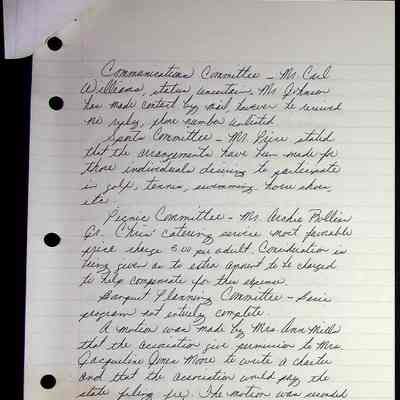 Communications Committee - Mr. Carl
Williams, status uncertain. Mr. Johnson
has made contact by mail, however he received
no reply, phone number unlisted.
Sports Committee - Mr. stated
that the arrangements have been made for
those individuals desiring to participate
in golf, tennis, swimming, horse shoes,
etc.
Picnic Committee - Mr. Archie
Jr. Chris' catering service most favorable
price charge 5.00 per adult. Consideration is
being given as to extra amount to be charged
to help compensate for this expense.
Banquet Planning Committee -
program not entirely complete.
A motion was made by Mrs. Ann Mills
that the association give permission to Mrs.
Jacqueline Jones Moore to write a charter
and that the association would pay the
state filing fee. The motion was seconded